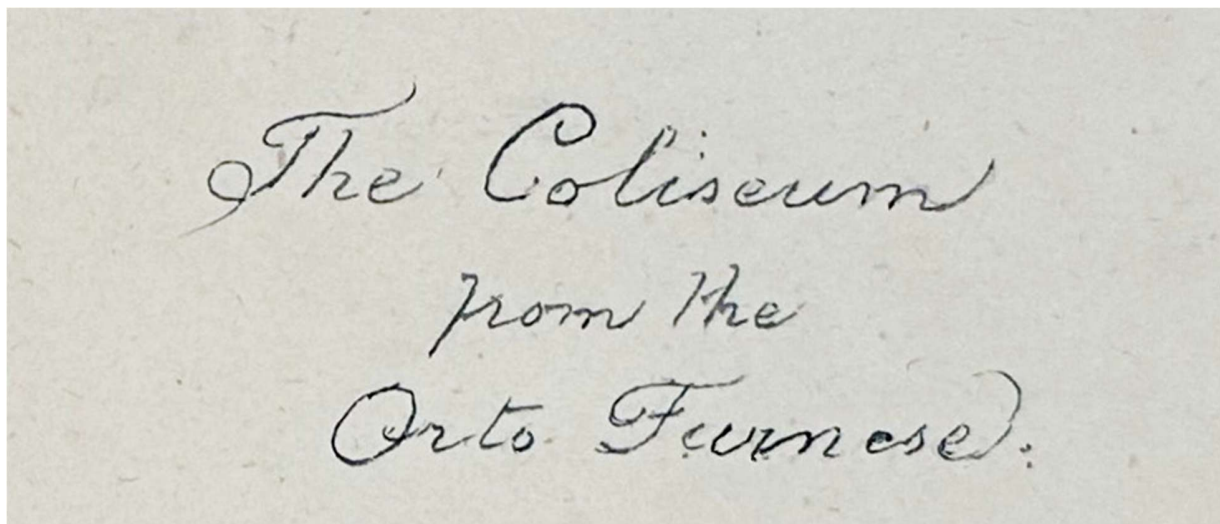 The Coliseum
from the
Orto Farnese.